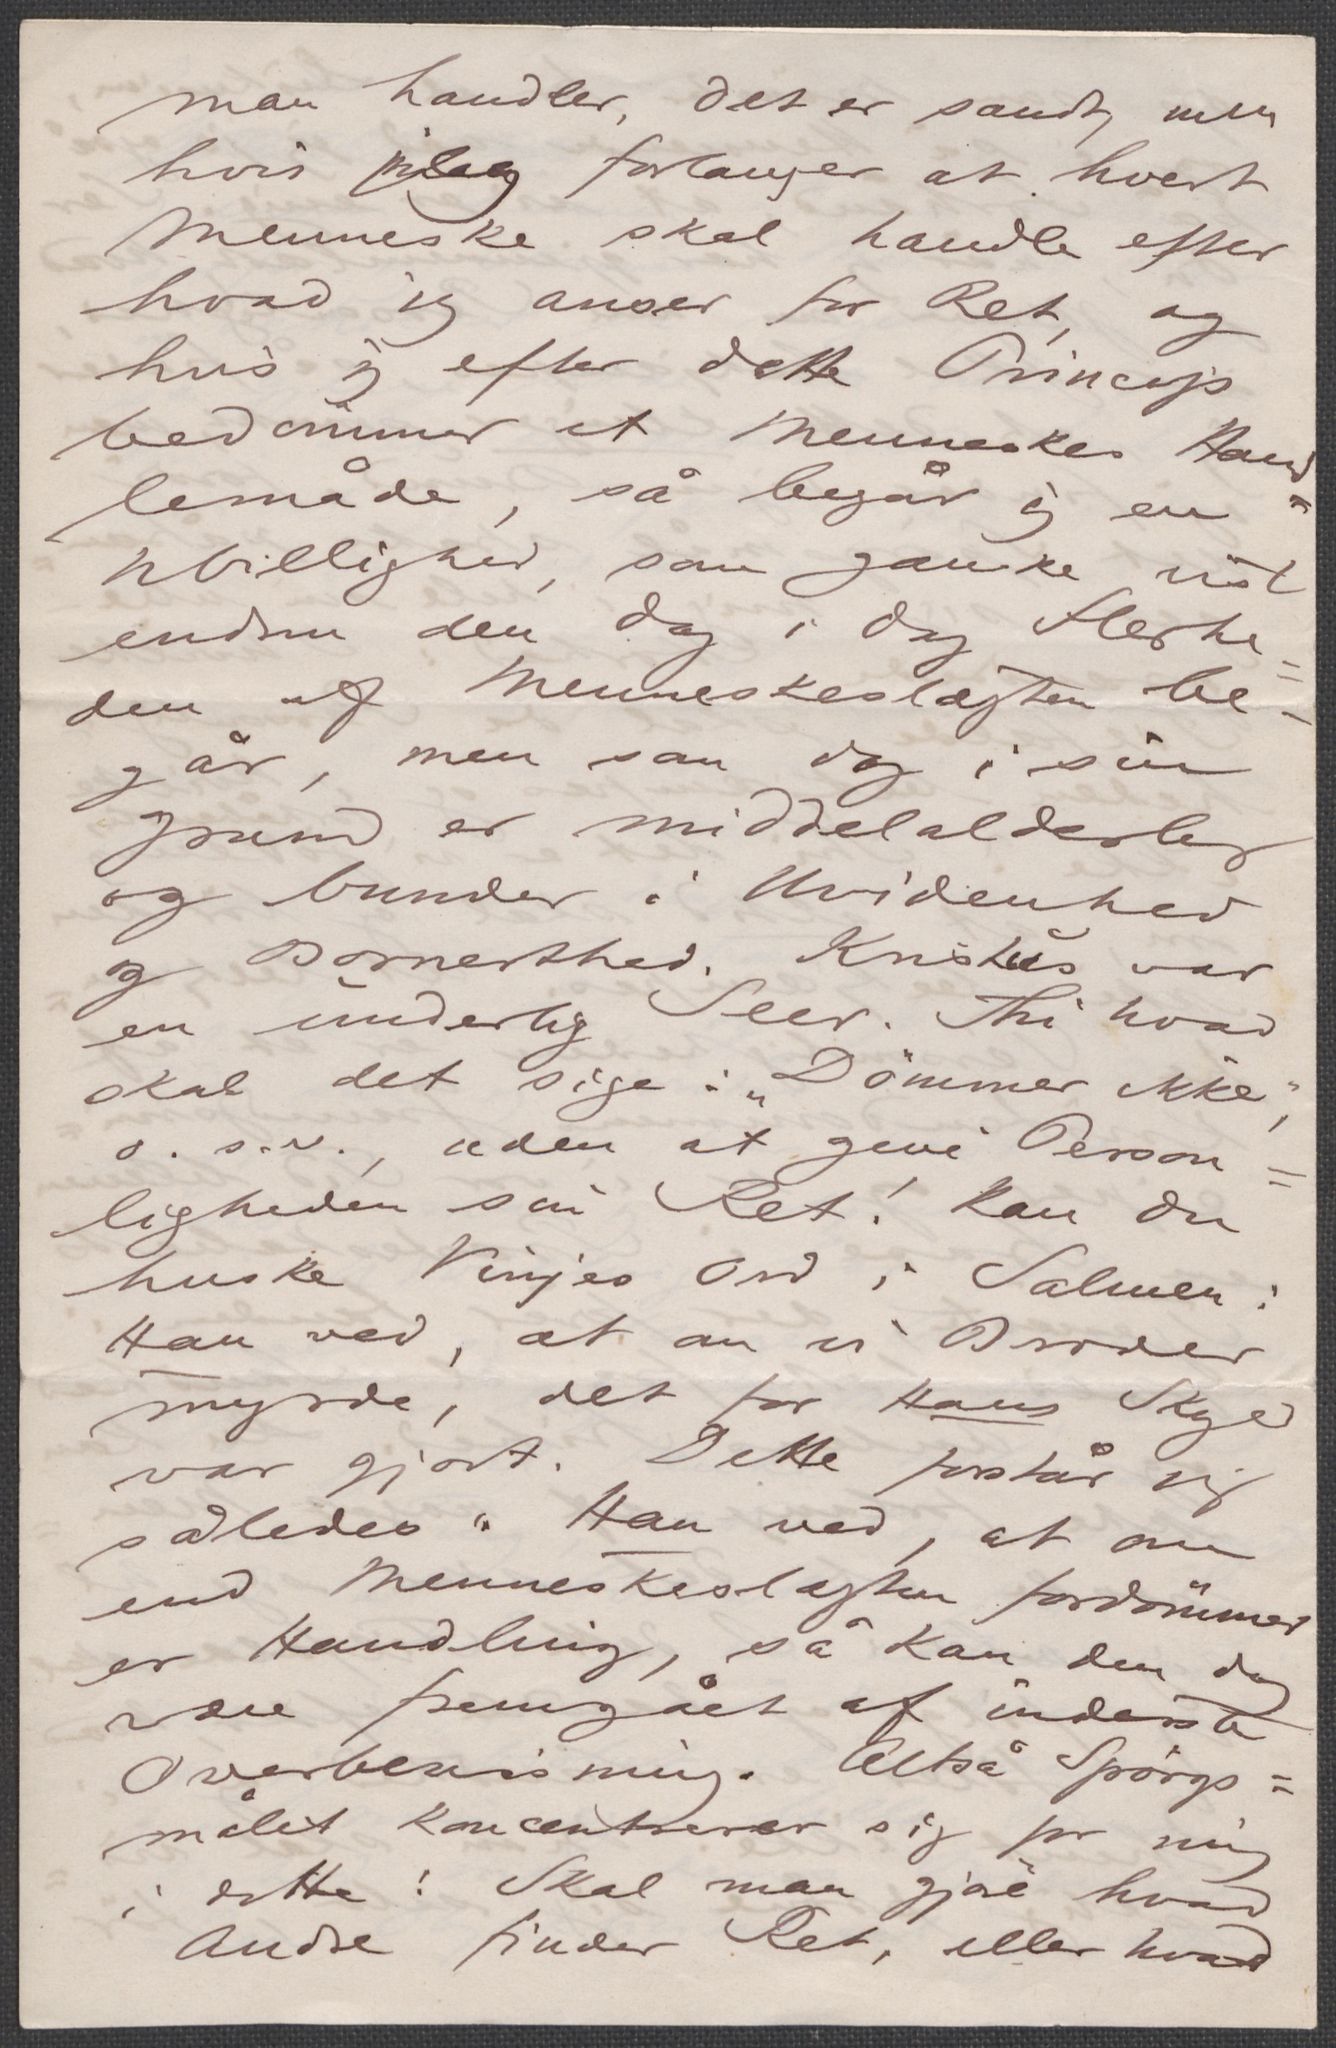 man handler, det er sandt, men
hvis jeg forlanger at hvert
Menneske skal handle efter
hvad jeg anser for Ret, og
hvis jeg efter dette Princip
bedömmer et Menneskes Hand=
lemåde, så begår jeg en
Ubillighed, som ganske vist
endnu den Dag i Dag Flerhe=
den af Menneskeslægten be=
går, men som dog i sin
Grund er middelalderlig
og bunder i Uvidenhed
og Bornerthed. Kristus var
en underlig Seer. Thi hvad
skal det sige: „Dömmer ikke“,
o. s. v., uden at give Person=
ligheden sin Ret! Kan du
huske Vinjes Ord i Salmen:
Han ved, at om vi Broder
myrde, det for Hans Skyld
var gjort. Dette forstår jeg
således: Han ved, at om
end Menneskeslægten fordömmer
en Handling, så kan den dog
være fremgået af inderste
Overbevisning. Altså Spörgs=
målet koncentrerer sig for mig
i dette: Skal man gjöre hvad
Andre finder Ret, eller hvad